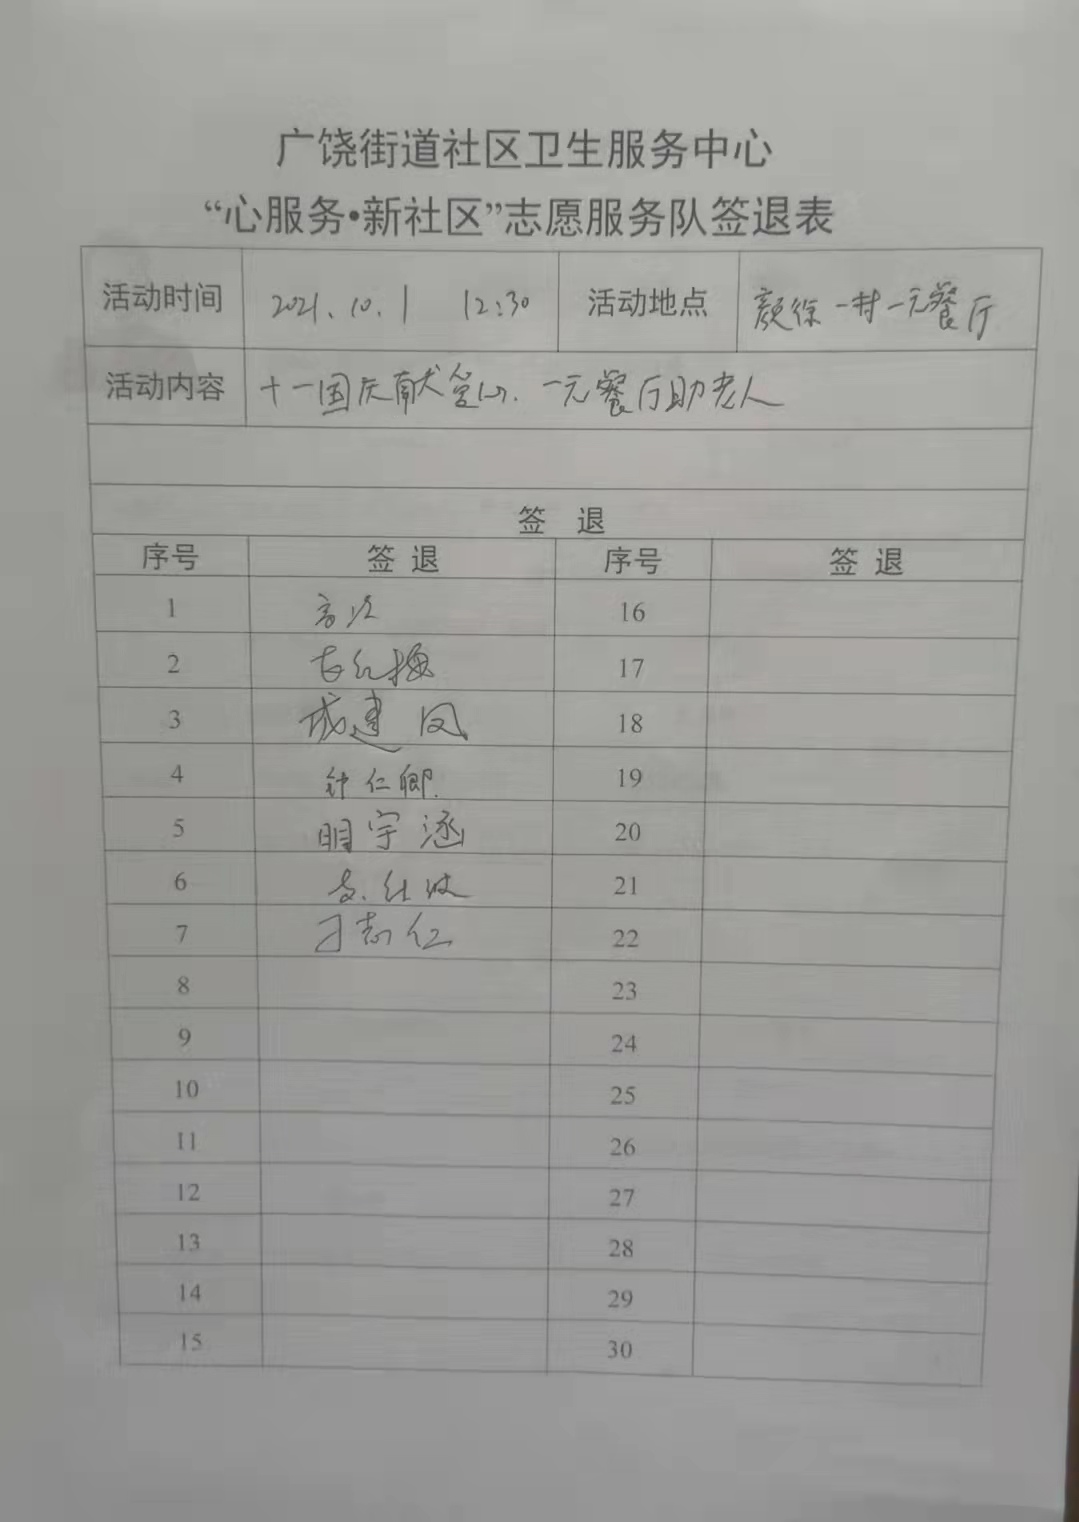 广饶街道社区卫生服务中心
“心服务•新社区”志愿服务队签退表
活动时间 2021.10.1 12:30 活动地点 颜徐一村一元餐厅
活动内容 十一国庆献爱心、一元餐厅助老人
签 退
序号 签 退 序号 签 退
1 16
2 红梅 17
3 成建凤 18
4 钟仁卿 19
5 明宇涵 20
6 21
7 刁志仁 22
8 23
9 24
10 25
11 26
12 27
13 28
14 29
15 30